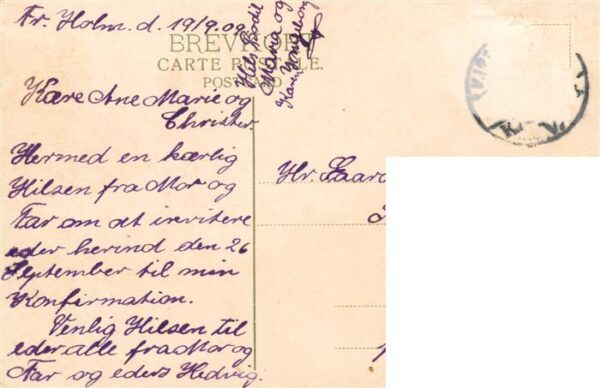 Fr. Holm. d. 19/9.09.
BREVKORT
CARTE POSTALE.
POSTKARTO
Hils Bodil
Maria og
Karen Yngeborg
Kære Ane Marie og
Christer.
Hermed en kærlig
Hilsen fra Mor og
Far om at invitere
eder herind den 26
September til min
Konfirmation.
Venlig Hilsen til
eder alle fra Mor og
Far og eders Hedvig.
Hr.